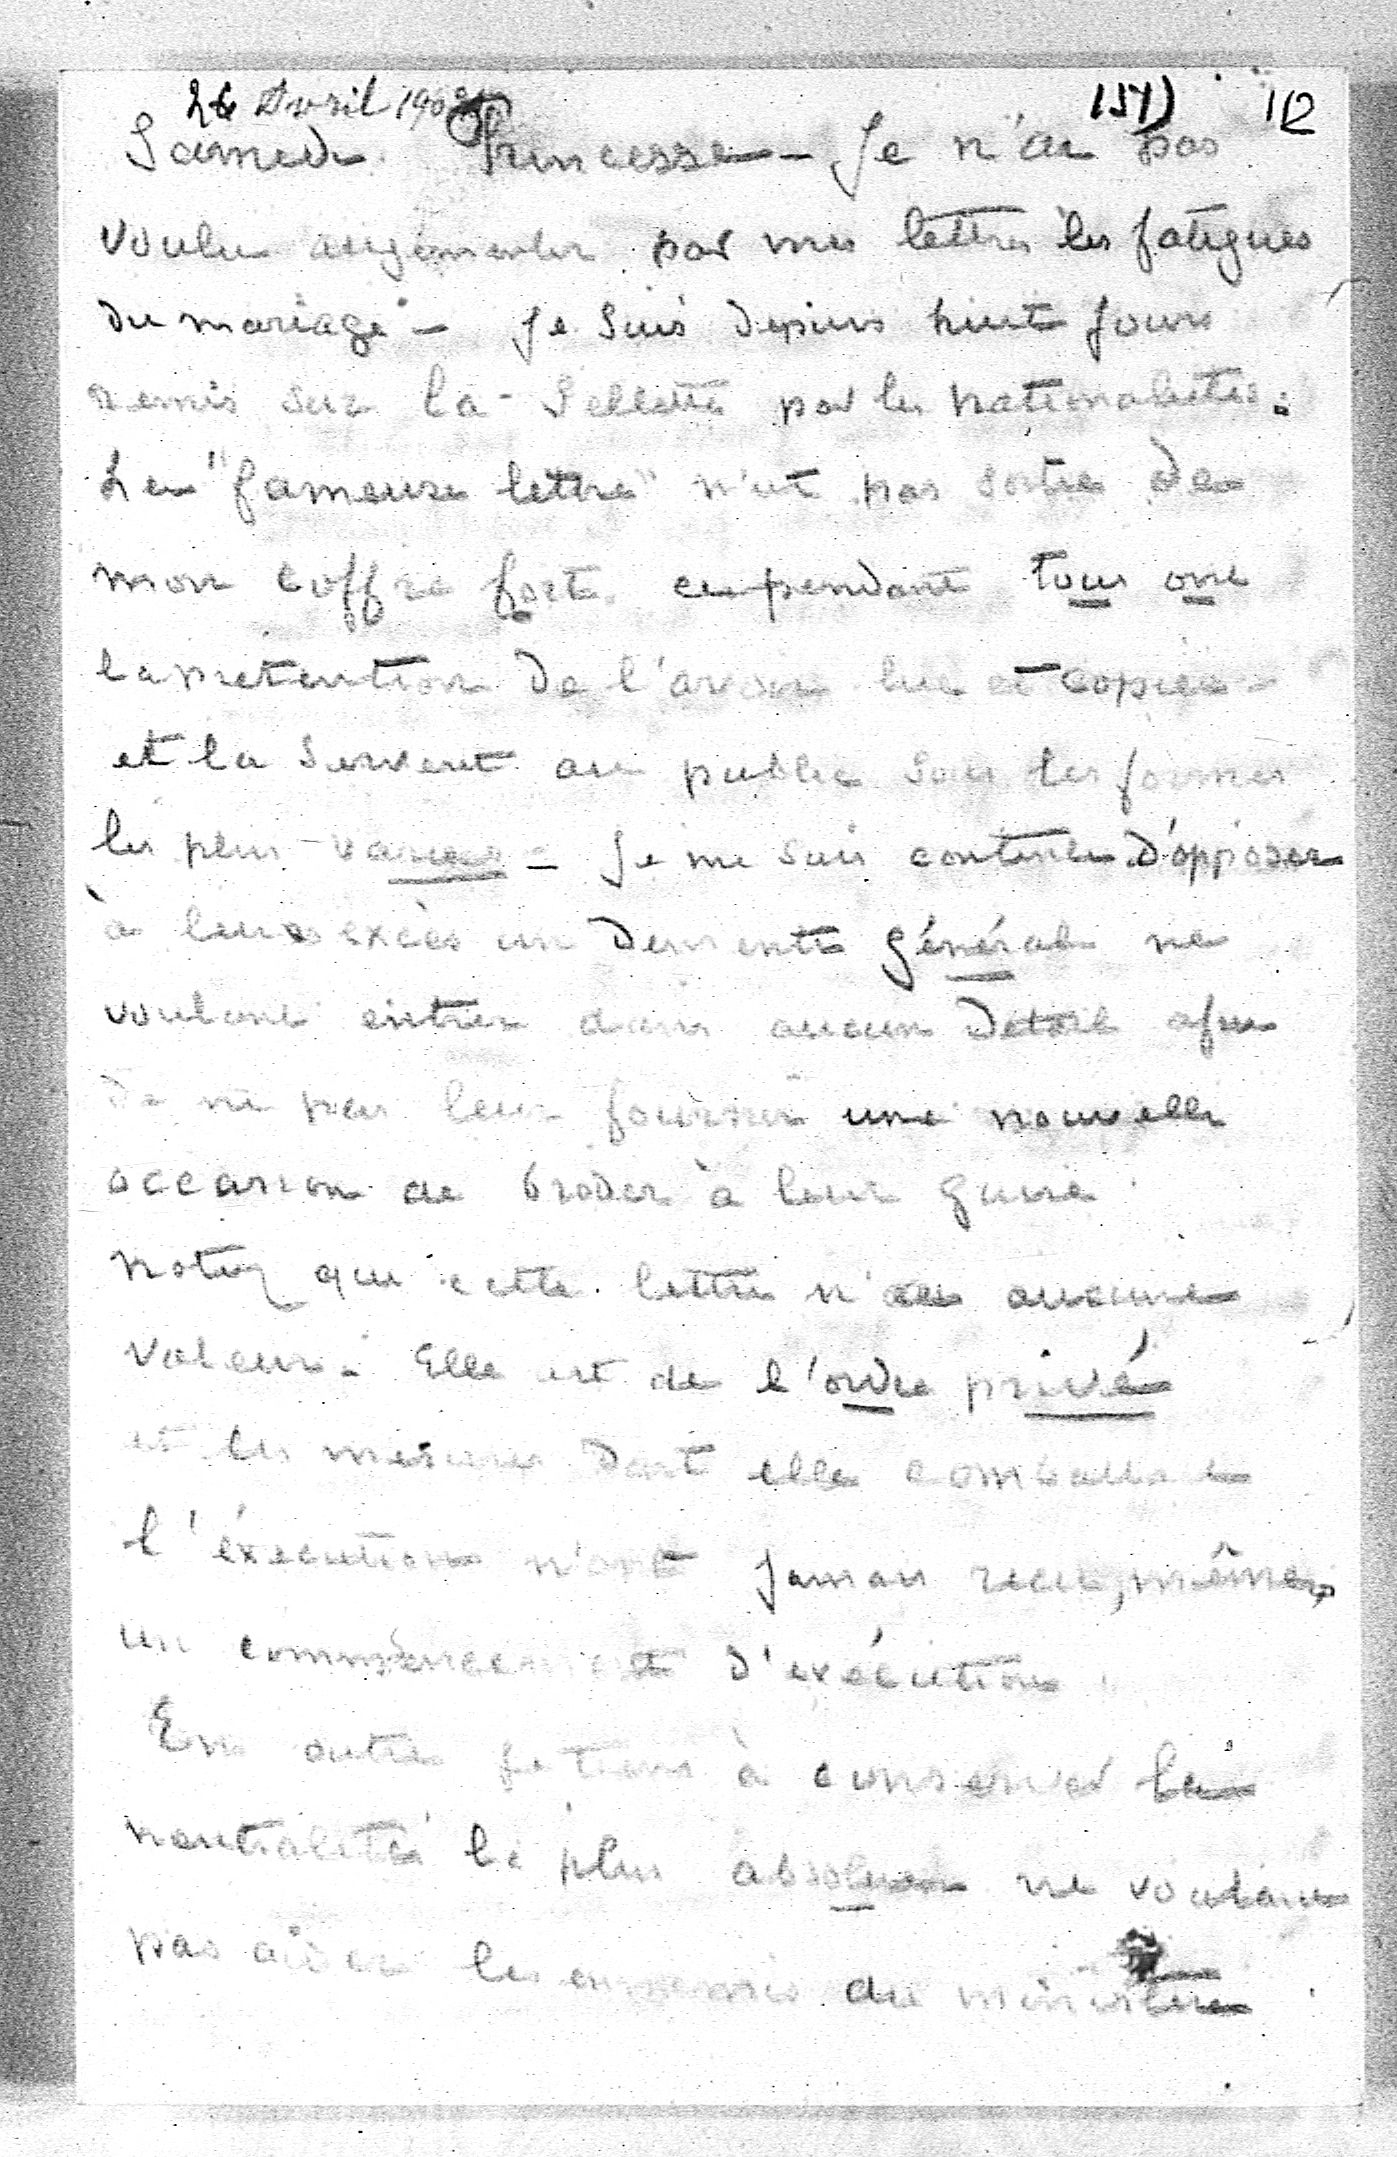 26 Avril 190 151) 112
Samedi. Princesse - Je n'ai pas
voulu augmenter par mes lettres les fatigues
du mariage - Je suis depuis huit jours
remis sur la sellette par les nationalistes :
La "fameuse lettre" n'est pas sortie de
mon coffre fort. cependant tous ont
la pretention de l'avoir lue et copiée -
et la servent au public sous les formes
les plus variées - Je me suis contenté d'opposer
à leurs excès un dementi général ne
voulant entrer dans aucun détail afin
de ne pas leur fournir une nouvelle
occasion de broder à leur guise.
notez que cette lettre n'a aucune
valeur. Elle est de l'ordre privé
et les mesures dont elle combattait
l'éxecution n'ont jamais reçu, même,
un commencement d'exécution.
En outre je tiens à conserver la
neutralité la plus absolue ne voulant
pas aider les ennemis du ministère